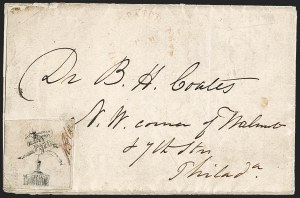 Dr B. H. Coates
N. W. corner of Walnut
& 7th Sts
Philada.